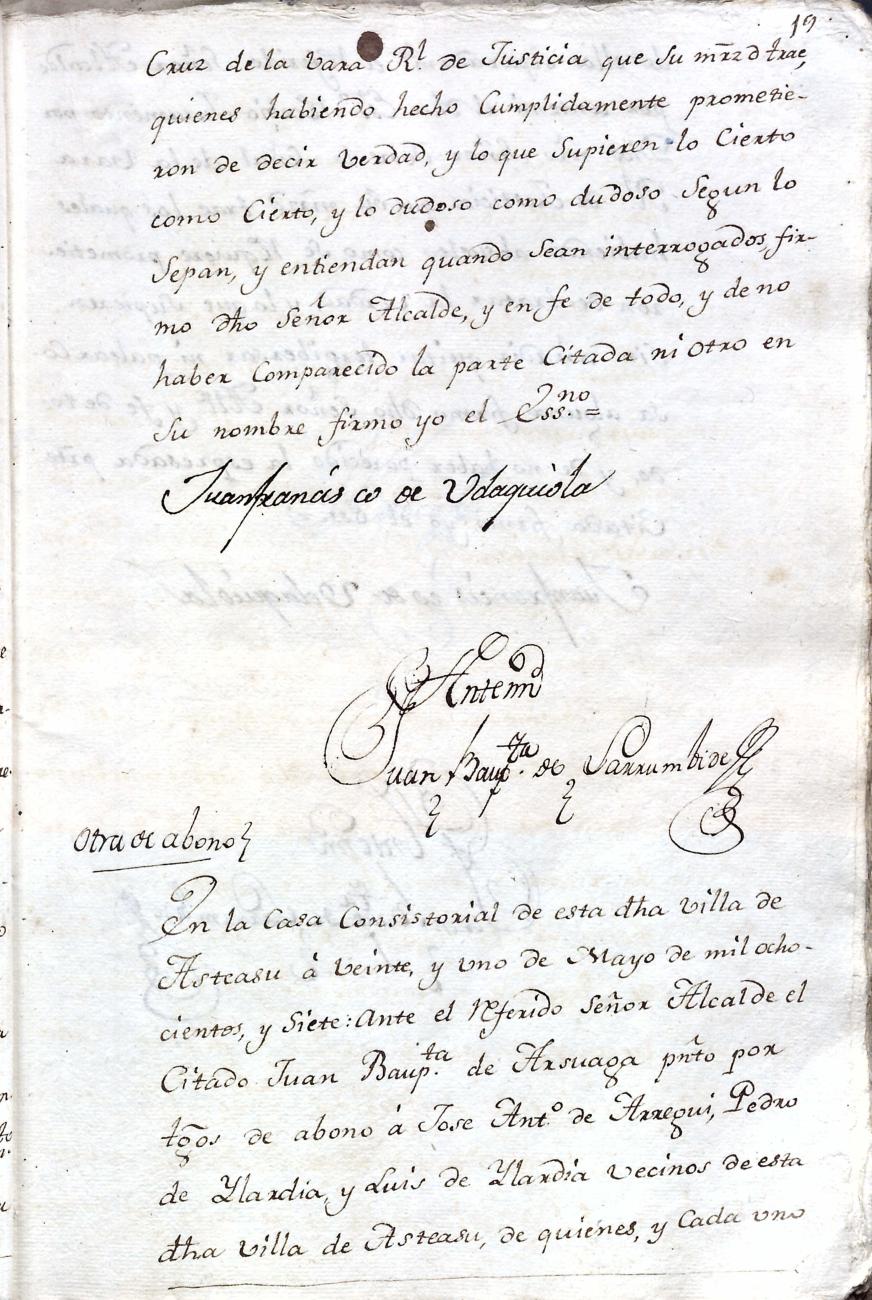 19.
Cruz de la vara Rl. de Justicia que su mrzd trae,
quienes habiendo hecho Cumplidamente prometie-
ron de decir verdad, y lo que Supieren lo Cierto
como Cierto, y lo dudoso como dudoso Segun lo
Sepan, y entiendan quando Sean interrogados, fir-
mo dho Señor Alcalde, y en fe de todo, y de no
haber Comparecido la parte Citada ni otro en
Su nombre firmo yo el Essno.=
Juan francisco de Udaquiola
Antemi
Juan Baupta. de Larrumbide
Otra de abono
En la Casa Consistorial de esta dha villa de
Asteasu á veinte, y uno de Mayo de mil ocho-
cientos, y Siete: Ante el referido Señor Alcalde el
Citado Juan Baupta. de Arsuaga pnto por
tgos de abono á Jose Anto. de Arregui, Pedro
de Ylardia, y Luis de Ylardia vecinos de esta
dha villa de Asteasu, de quienes, y Cada uno